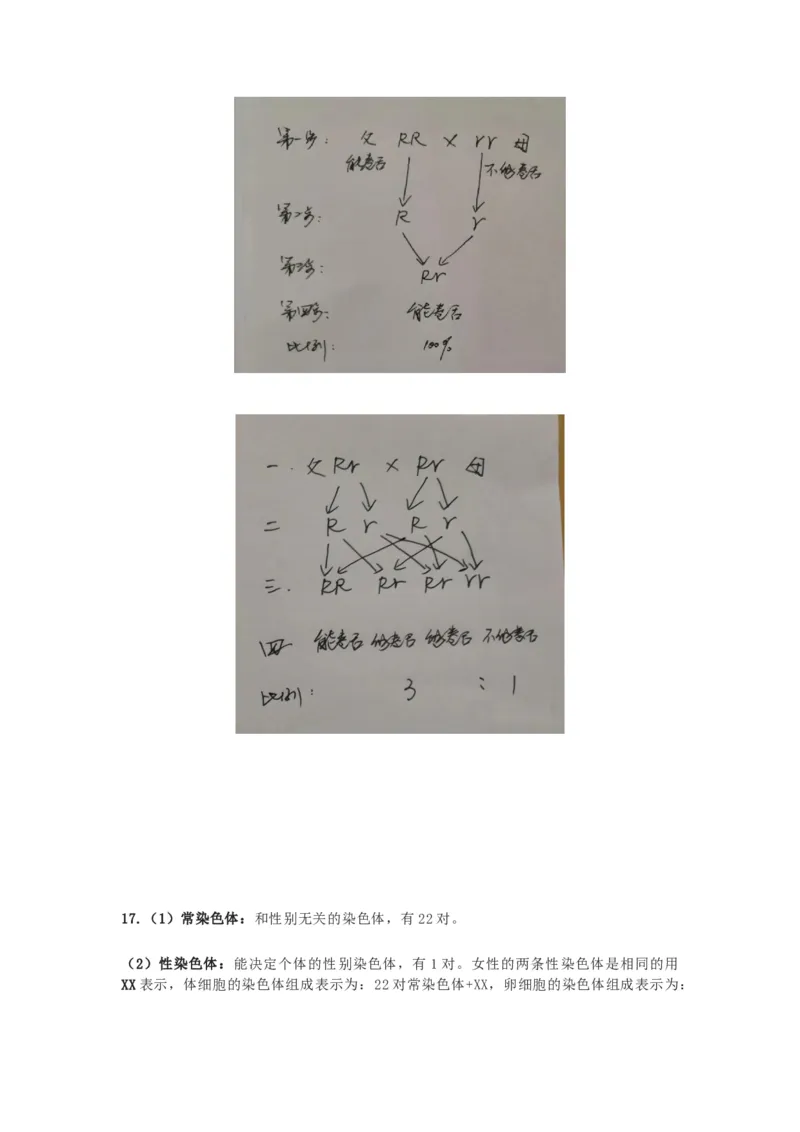 第一步： 父 RR × rr 母
能卷舌 不能卷舌
第二步： R r
第三步： Rr
第四步： 能卷舌
比例： 100%
一. 父 Rr × Rr 母
二 R r R r
三. RR Rr Rr rr
四 能卷舌 能卷舌 能卷舌 不能卷舌
比例： 3 : 1
17.（1）常染色体：和性别无关的染色体，有22对。
（2）性染色体：能决定个体的性别染色体，有1对。女性的两条性染色体是相同的用
XX表示，体细胞的染色体组成表示为：22对常染色体+XX，卵细胞的染色体组成表示为：